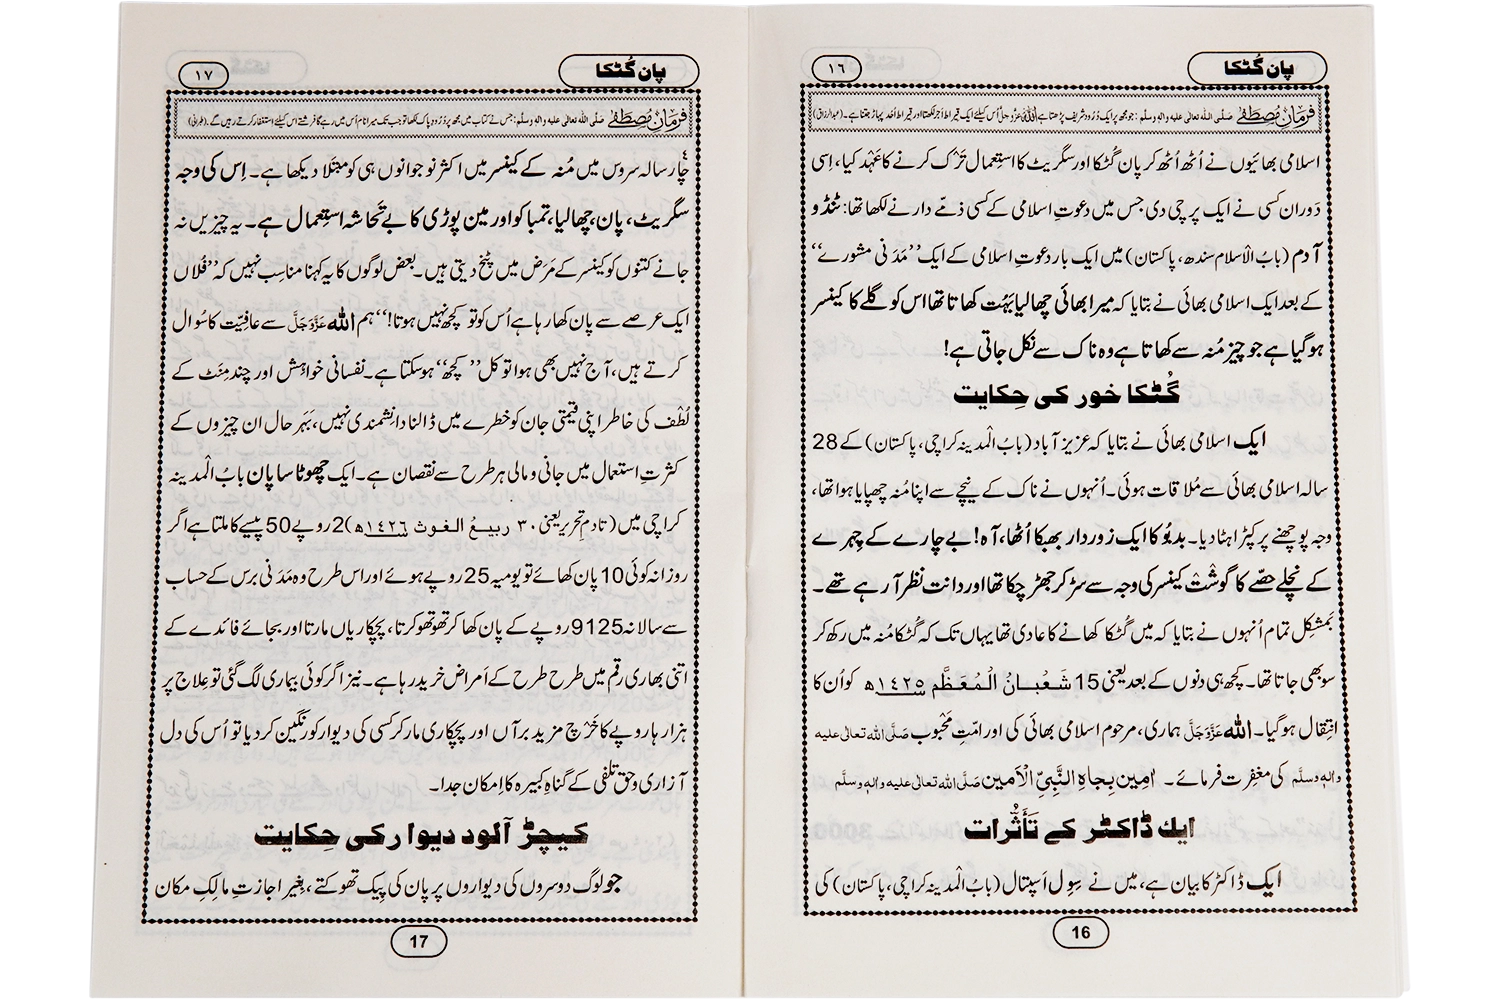 پان گُٹکا
۱۶
فرمانِ مُصطَفٰے صلی اللہ تعالیٰ علیہ والہٖ وسلم : جو مجھ پر ایک دُرُود شریف پڑھتا ہے اللہ عزوجل اُس کیلئے ایک قیراط اجر لکھتا اور قیراط اُحُد پہاڑ جتنا ہے۔ (عبدالرزاق)
اسلامی بھائیوں نے اُٹھ اُٹھ کر پان گُٹکا اور سگریٹ کا استِعمال تَرْک کرنے کا عَہْد کیا، اِسی
دَوران کسی نے ایک پرچی دی جس میں دعوتِ اسلامی کے کسی ذمّے دار نے لکھا تھا: ٹنڈو
آدم (بابُ الْاسلام سندھ، پاکستان) میں ایک بار دعوتِ اسلامی کے ایک ’’مَدَنی مشورے‘‘
کے بعد ایک اسلامی بھائی نے بتایا کہ میرا بھائی چھالیا بَہُت کھاتا تھا اس کو گلے کا کینسر
ہو گیا ہے جو چیز مُنہ سے کھاتا ہے وہ ناک سے نکل جاتی ہے!
گُٹکا خور کی حِکایت
ایک اسلامی بھائی نے بتایا کہ عزیز آباد (بابُ الْمدینہ کراچی، پاکستان) کے 28
سالہ اسلامی بھائی سے مُلاقات ہوئی۔ اُنہوں نے ناک کے نیچے سے اپنا مُنہ چھپایا ہوا تھا،
وجہ پوچھنے پر کپڑا ہٹا دیا۔ بدبُو کا ایک زوردار بھبکا اُٹھا، آہ! بے چارے کے چِہرے
کے نچلے حصّے کا گوشْت کینسر کی وجہ سے سڑ کر جھڑ چکا تھا اور دانت نظر آ رہے تھے۔
بَمشکِل تمام اُنہوں نے بتایا کہ میں گُٹکا کھانے کا عادی تھا یہاں تک کہ گُٹکا مُنہ میں رکھ کر
سو بھی جاتا تھا۔ کچھ ہی دنوں کے بعد یعنی 15 شَعْبانُ الْمُعَظَّم ۱٤۲٥ھ کو اُن کا
انتِقال ہو گیا۔ اللہ عَزَّوَجَلَّ ہماری، مرحوم اسلامی بھائی کی اور امّتِ مَحْبوب صَلَّی اللہ تعالیٰ علیہ
والہٖ وسلَّم کی مغفِرت فرمائے۔ امین بِجاہِ النَّبِیِّ الْاَمین صَلَّی اللہ تعالیٰ علیہ والہٖ وسلَّم
ایک ڈاکٹر کے تَأَثُّرات
ایک ڈاکٹر کا بیان ہے، میں نے سِوِل اَسپتال (بابُ الْمدینہ کراچی، پاکستان) کی
16
پان گُٹکا
۱۷
فرمانِ مُصطَفٰے صلی اللہ تعالیٰ علیہ والہٖ وسلم : جس نے کتاب میں مجھ پر دُرُودِ پاک لکھا تو جب تک میرا نام اُس میں رہے گا فرشتے اس کیلئے استغفار کرتے رہیں گے۔ (طبرانی)
چار سالہ سروِس میں مُنہ کے کینسر میں اکثر نوجوانوں ہی کو مبتَلا دیکھا ہے۔ اِس کی وجہ
سگریٹ، پان، چھالیا، تمباکو اور مین پوڑی کا بے تَحاشہ استِعمال ہے۔ یہ چیزیں نہ
جانے کتنوں کو کینسر کے مَرَض میں پٹخ دیتی ہیں۔ بعض لوگوں کا یہ کہنا مناسِب نہیں کہ ’’فُلاں
ایک عرصے سے پان کھا رہا ہے اُس کو تو کچھ نہیں ہوتا!‘‘ ہم اللہ عَزَّوَجَلَّ سے عافیّت کا سُوال
کرتے ہیں، آج نہیں بھی ہوا تو کل ’’کچھ‘‘ ہو سکتا ہے۔ نفسانی خواہِش اور چند مِنَٹ کے
لُطْف کی خاطر اپنی قیمتی جان کو خطرے میں ڈالنا دانِشمندی نہیں، بَہَر حال ان چیزوں کے
کثرتِ استعمال میں جانی و مالی ہر طرح سے نقصان ہے۔ ایک چھوٹا سا پان بابُ الْمدینہ
کراچی میں (تادمِ تحریر یعنی ۳۰ ربیعُ الغوث ۱٤۲٦ھ) 2 روپے 50 پیسے کا ملتا ہے اگر
روزانہ کوئی 10 پان کھائے تو یومیہ 25 روپے ہوئے اور اس طرح وہ مَدَنی برس کے حساب
سے سالانہ 9125 روپے کے پان کھا کر تھو تھو کرتا، پچکاریاں مارتا اور بجائے فائدے کے
اتنی بھاری رقم میں طرح طرح کے اَمراض خرید رہا ہے۔ نیز اگر کوئی بیماری لگ گئی تو عِلاج پر
ہزار ہا روپے کا خَرْچ مزید برآں اور پچکاری مار کر کسی کی دیوار کو رنگین کر دیا تو اُس کی دل
آزاری و حق تلَفی کے گناہِ کبیرہ کا اِمکان جدا۔
کیچڑ آلود دیوار کی حِکایت
جو لوگ دوسروں کی دیواروں پر پان کی پِیک تھوکتے، بِغیر اجازتِ مالِکِ مکان
17